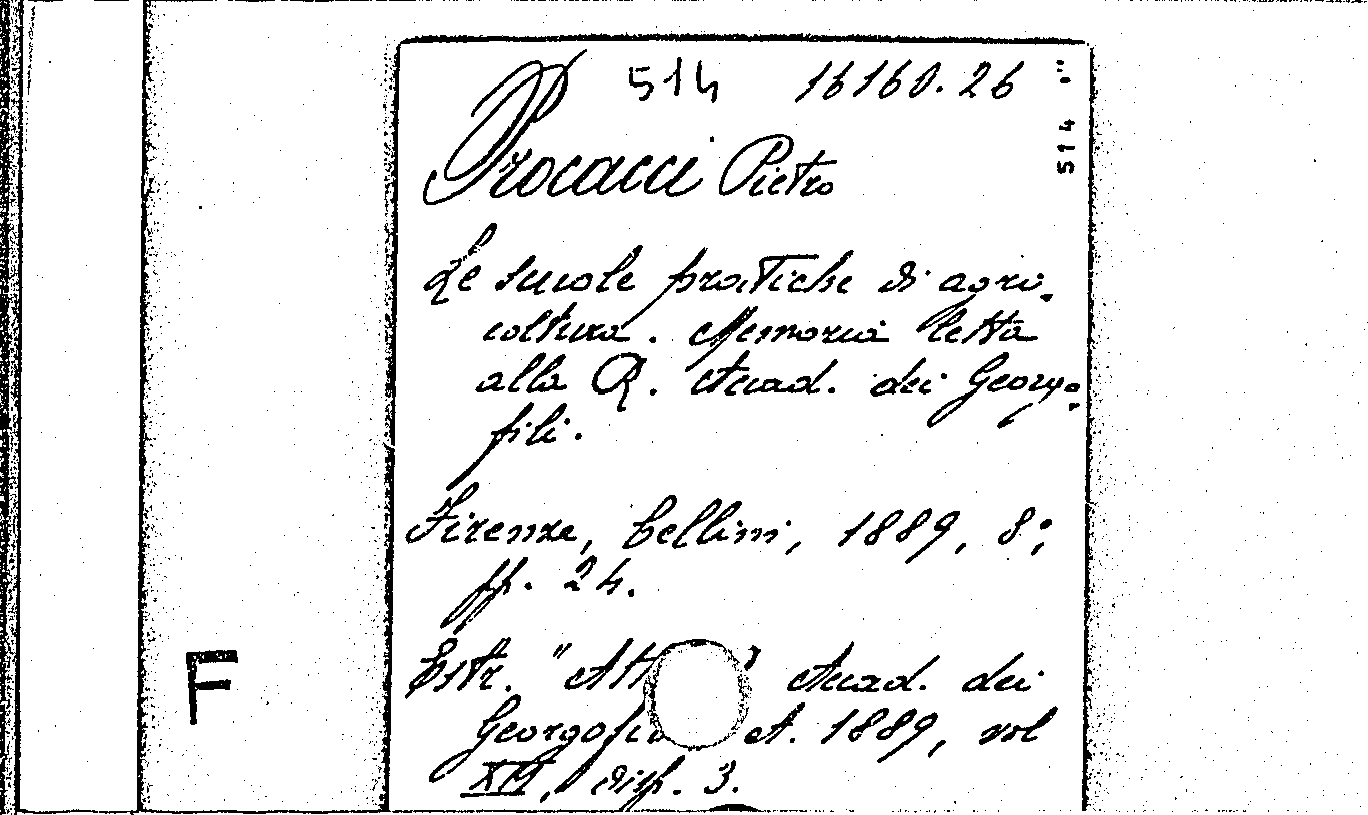 514 16160.26
514 "
Procacci Pietro
Le scuole pratiche di agri-
coltura. Memoria letta
alla R. Accad. dei Georgo-
fili.
Firenze, Cellini, 1889, 8°,
pp. 24.
Estr. "Att " Accad. dei
Georgofi A. 1889, vol
disp. 3.
F